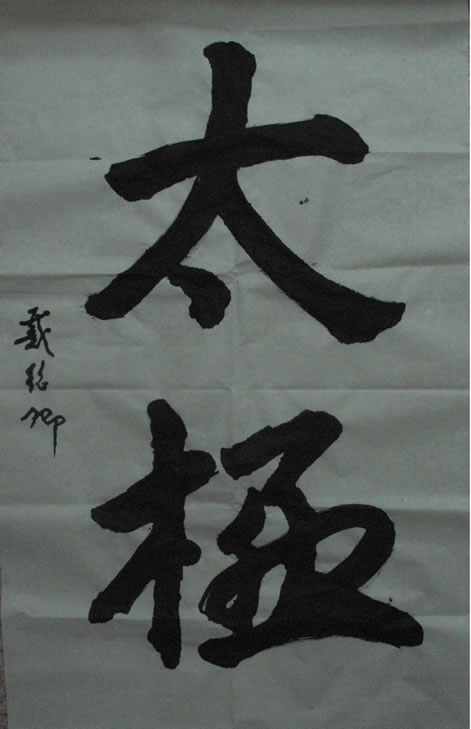 太極
戴卿